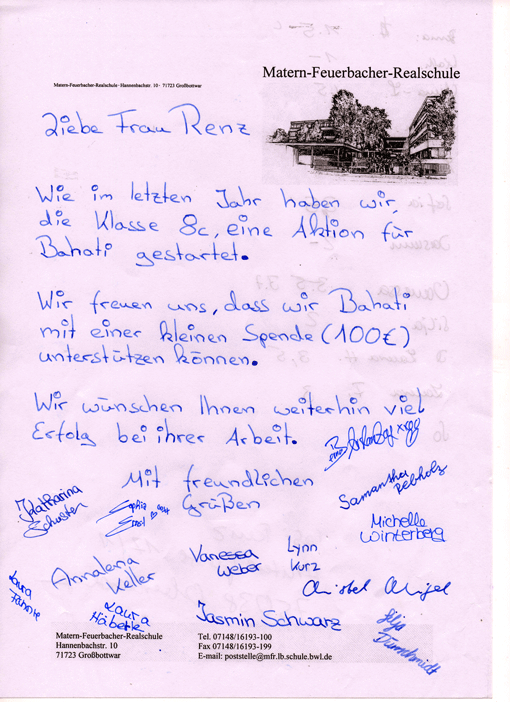 Matern-Feuerbacher-Realschule
Matern-Feuerbacher-Realschule · Hannenbachstr. 10 · 71723 Großbottwar
Liebe Frau Renz
Wie im letzten Jahr haben wir,
die Klasse 8c, eine Aktion für
Bahati gestartet.
Wir freuen uns, dass wir Bahati
mit einer kleinen Spende (100€)
unterstützen können.
Wir wünschen Ihnen weiterhin viel
Erfolg bei ihrer Arbeit.
Mit freundlichen
Grüßen
Katharina
Schuster
Sophia
Samantha
Rebholz
Michelle
Winterberg
Vanessa
Weber
Lynn
Kurz
Annalena
Keller
Laura
Laura
Häberle
Jasmin Schwarz
Matern-Feuerbacher-Realschule
Hannenbachstr. 10
71723 Großbottwar
Tel. 07148/16193-100
Fax 07148/16193-199
E-mail: poststelle@mfr.lb.schule.bwl.de